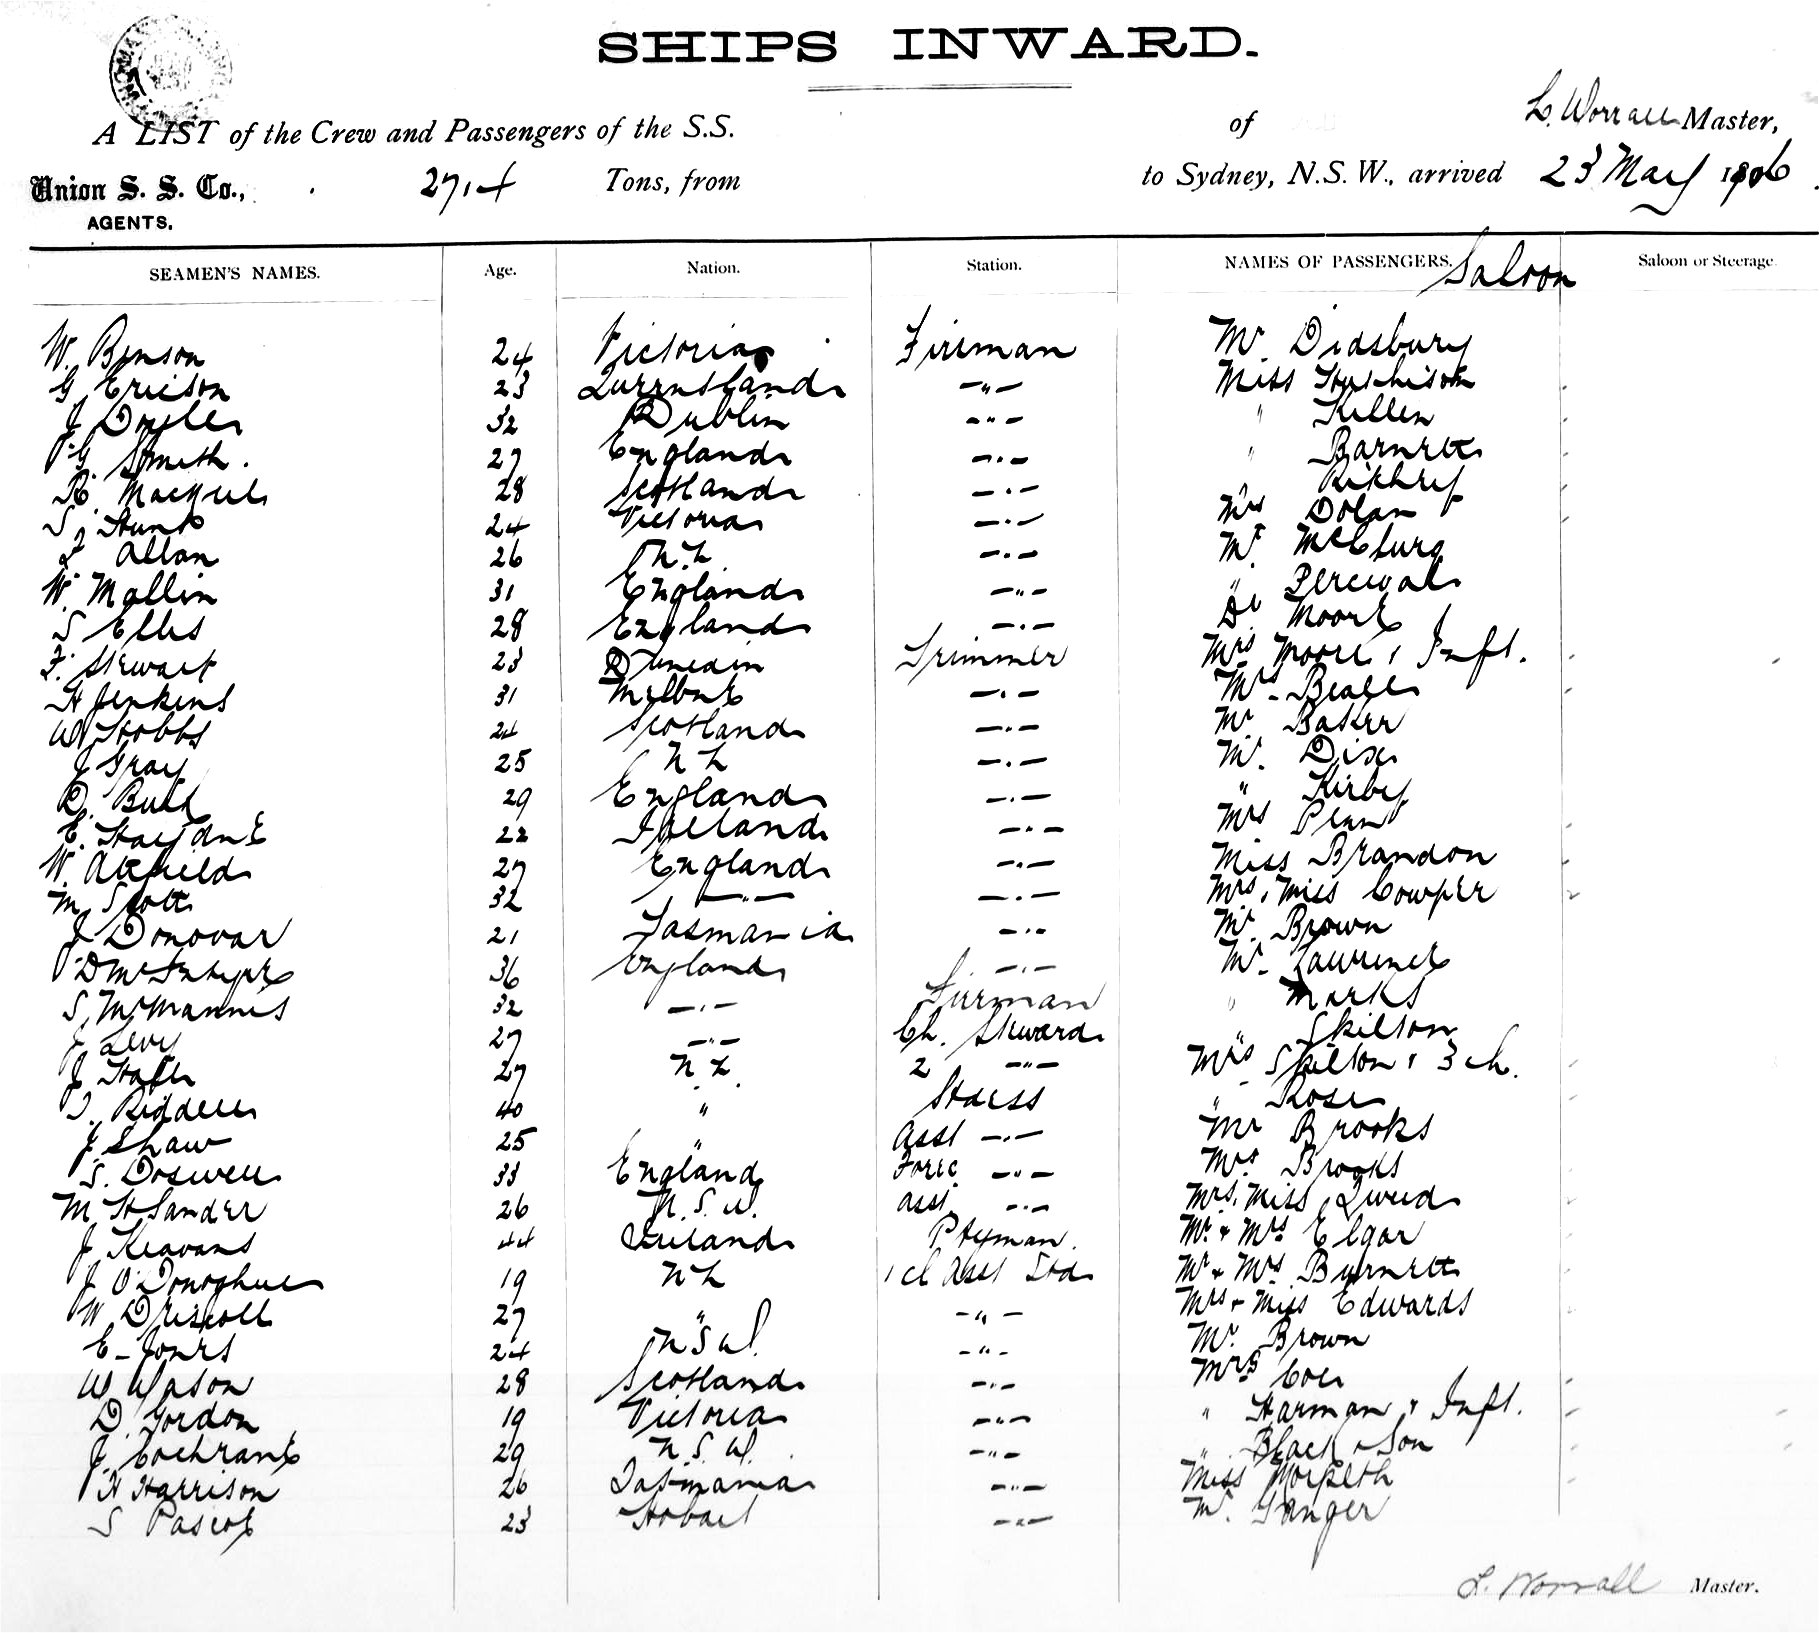 SHIPS INWARD.
A LIST of the Crew and Passengers of the S.S. of L. Worrall Master,
Union S. S. Co., 2714 Tons, from to Sydney, N.S.W., arrived 23 May 1906
AGENTS.
SEAMEN'S NAMES. Age. Nation. Station. NAMES OF PASSENGERS. Saloon Saloon or Steerage.
W. Benson 24 Victoria Fireman Mr. Didsbury
G Ericson 23 Queensland -"- Miss Hutchison
J Doyle 32 Dublin -"- " Killen
G Smith. 27 England -"- " Barnett
R. 28 Scotland -"- "
S. Hunt 24 Victoria -"- Mrs Dolan
Allan 26 N.Z. -"- Mr.
W. Mallin 31 England -"- " Percival
S Ellis 28 England -"- Dr Moore
F. Stewart 23 Dunedin Trimmer Mrs Moore & Inft.
H Jenkins 31 Melbne -"- Mrs Beale
W Stobbs 24 Scotland -"- Mr Baker
J Gray 25 N Z -"- Mr. Dix
D. 29 England -"- " Kirby
E. 22 Ireland -"- Mrs Penn
W. 27 England -"- Miss Brandon
M. Scott 32 -"- -"- Mrs & Miss Cowper
J Donovan 21 Tasmania -"- Mr. Brown
D 36 England -"- Mr. Lawrence
S. McMannis 32 -"- Fireman " Marks
J Levy 27 -"- Ch. Steward " Skilton
J 27 N Z. 2 -"- Mrs Skilton & 3 ch.
Riddell 40 " Stdess " Rose
J. Shaw 25 " Asst -"- Mr Brooks
S. Doswell 33 England Forec. -"- Mrs Brooks
M H Sander 26 N.S.W. Asst. -"- Mrs & Miss
J. Keavans 44 Ireland Ptyman. Mr. & Mrs Elgar
J O'Donoghue 19 N Z 1 cl Asst Std. Mr & Mrs Burnett
W Driscoll 27 " -"- Mrs & Miss Edwards
E - Jones 24 N S W. -"- Mr. Brown
W Mason 28 Scotland -"- Mrs Coe
D. Gordon 19 Victoria -"- " Harman & Inft.
J. Cochrane 29 N.S.W. -"- " Black & Son
H Harrison 26 Tasmania -"- Miss Morpeth
S Pascoe 23 Hobart -"- Mr. Ganger
L. Worrall Master.